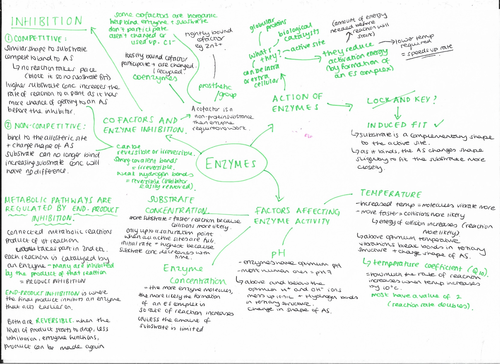 INHIBITION
① COMPETITIVE:
similar shape to substrate
compete to bind to AS
↳ no reaction takes place
(while it is no substrate fits)
higher substrate conc. increases
the rate of reaction to a point as it has
more chance of getting to an AS
before the inhibitor.
② NON-COMPETITIVE:
bind to the allosteric site
→ change shape of AS
substrate can no longer bind
increasing substrate conc will
have no difference.
Can be
irreversible or reversible.
strong covalent bonds
= irreversible
weak hydrogen bonds
= reversible
easily removed)
some cofactors are inorganic
help bind enzyme + substrate
don't participate
aren't changed or
used up. Cl⁻
tightly bound
cofactor
eg Zn²⁺
loosely bound cofactor
participate + are changed
(recycled)
coenzymes
prosthetic
group
A cofactor is a
non-protein substance
that an enzyme
requires to work
COFACTORS AND
ENZYME INHIBITION
ENZYMES
ACTION OF
ENZYMES
globular
proteins
biological
catalysts
active site
What's
they?
can be intra
or extra
cellular
they reduce
activation energy
(by formation of
an ES complex)
(amount of energy
needed before
a reaction will
start)
lower temp
required
= speeds up rate
LOCK AND KEY?
INDUCED FIT ✓
↳ Substrate is a complementary shape
to the active site.
↳ as it binds, the AS changes shape
slightly to fit the substrate more
closely.
METABOLIC PATHWAYS ARE
REGULATED BY END-PRODUCT
INHIBITION.
connected metabolic reactions
product of 1st reaction
takes part in 2nd etc.
each reaction is catalysed by
an enzyme → many are inhibited
by the product of that reaction
= PRODUCT INHIBITION
END-PRODUCT INHIBITION is when
the final product inhibits an enzyme
that acts earlier on.
Both are REVERSIBLE. when the
level of product starts to drop, less
inhibition, enzyme functions,
product can be made again
SUBSTRATE
CONCENTRATION
more substrate = faster reaction because
collisions more likely
only up to a saturation point
when all active sites are full
initial rate = highest because
substrate conc decreases with
time.
Enzyme
Concentration
→ the more enzyme molecules,
the more likely the formation
of an ES complex is
so rate of reaction increases
unless the amount of
substrate is limited
FACTORS AFFECTING
ENZYME ACTIVITY
pH
- enzymes have optimum pH
- most human ones = pH 7
↳ above and below the
optimum H⁺ and OH⁻ ions
mess up ionic + hydrogen bonds
in tertiary structure.
change in shape of AS.
TEMPERATURE
- increased temp = molecules vibrate more
- move faster = collisions more likely
↳ energy of collision increases (reaction
more likely)
- above optimum temperature
vibrations break bonds in tertiary
structure + change shape of AS.
↳ temperature coefficient (Q₁₀)
shows how much the rate of reaction
increases when temp increases
by 10°C.
most have a value of 2
(reaction rate doubles).